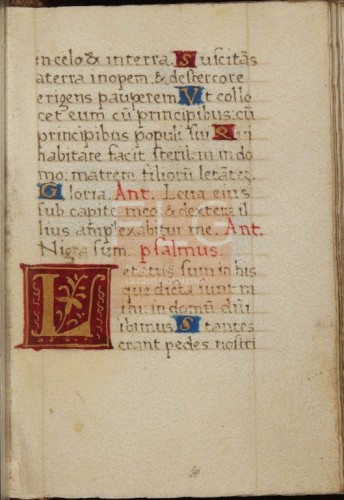 in celo & in terra. Suscitãs
a terra inopem. & de stercore
erigens pauperem Vt collo
cet eum cũ principibus: cũ
principibus populi sui Qui
habitare facit sterilem in do
mo: matrem filiorũ letãtẽ.
Gloria. Ant. Leua eius
sub capite meo & dextera il
lius amplexabitur me. Ant.
Nigra sum. psalmus.
Letatus sum in his
que dicta sunt m
ihi: in domũ dñi
ibimus Stantes
erant pedes nostri